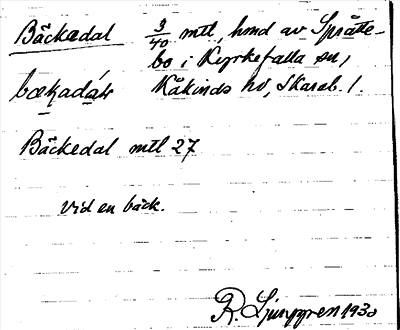 Bäckadal 3/40 mtl, hmd av Sprätte-
bo i Kyrkefalla sn,
bækadáɫ Kåkinds hd, Skarab. l.
Bäckedal mtl 27
Vid en bäck.
R. Ljunggren 1930